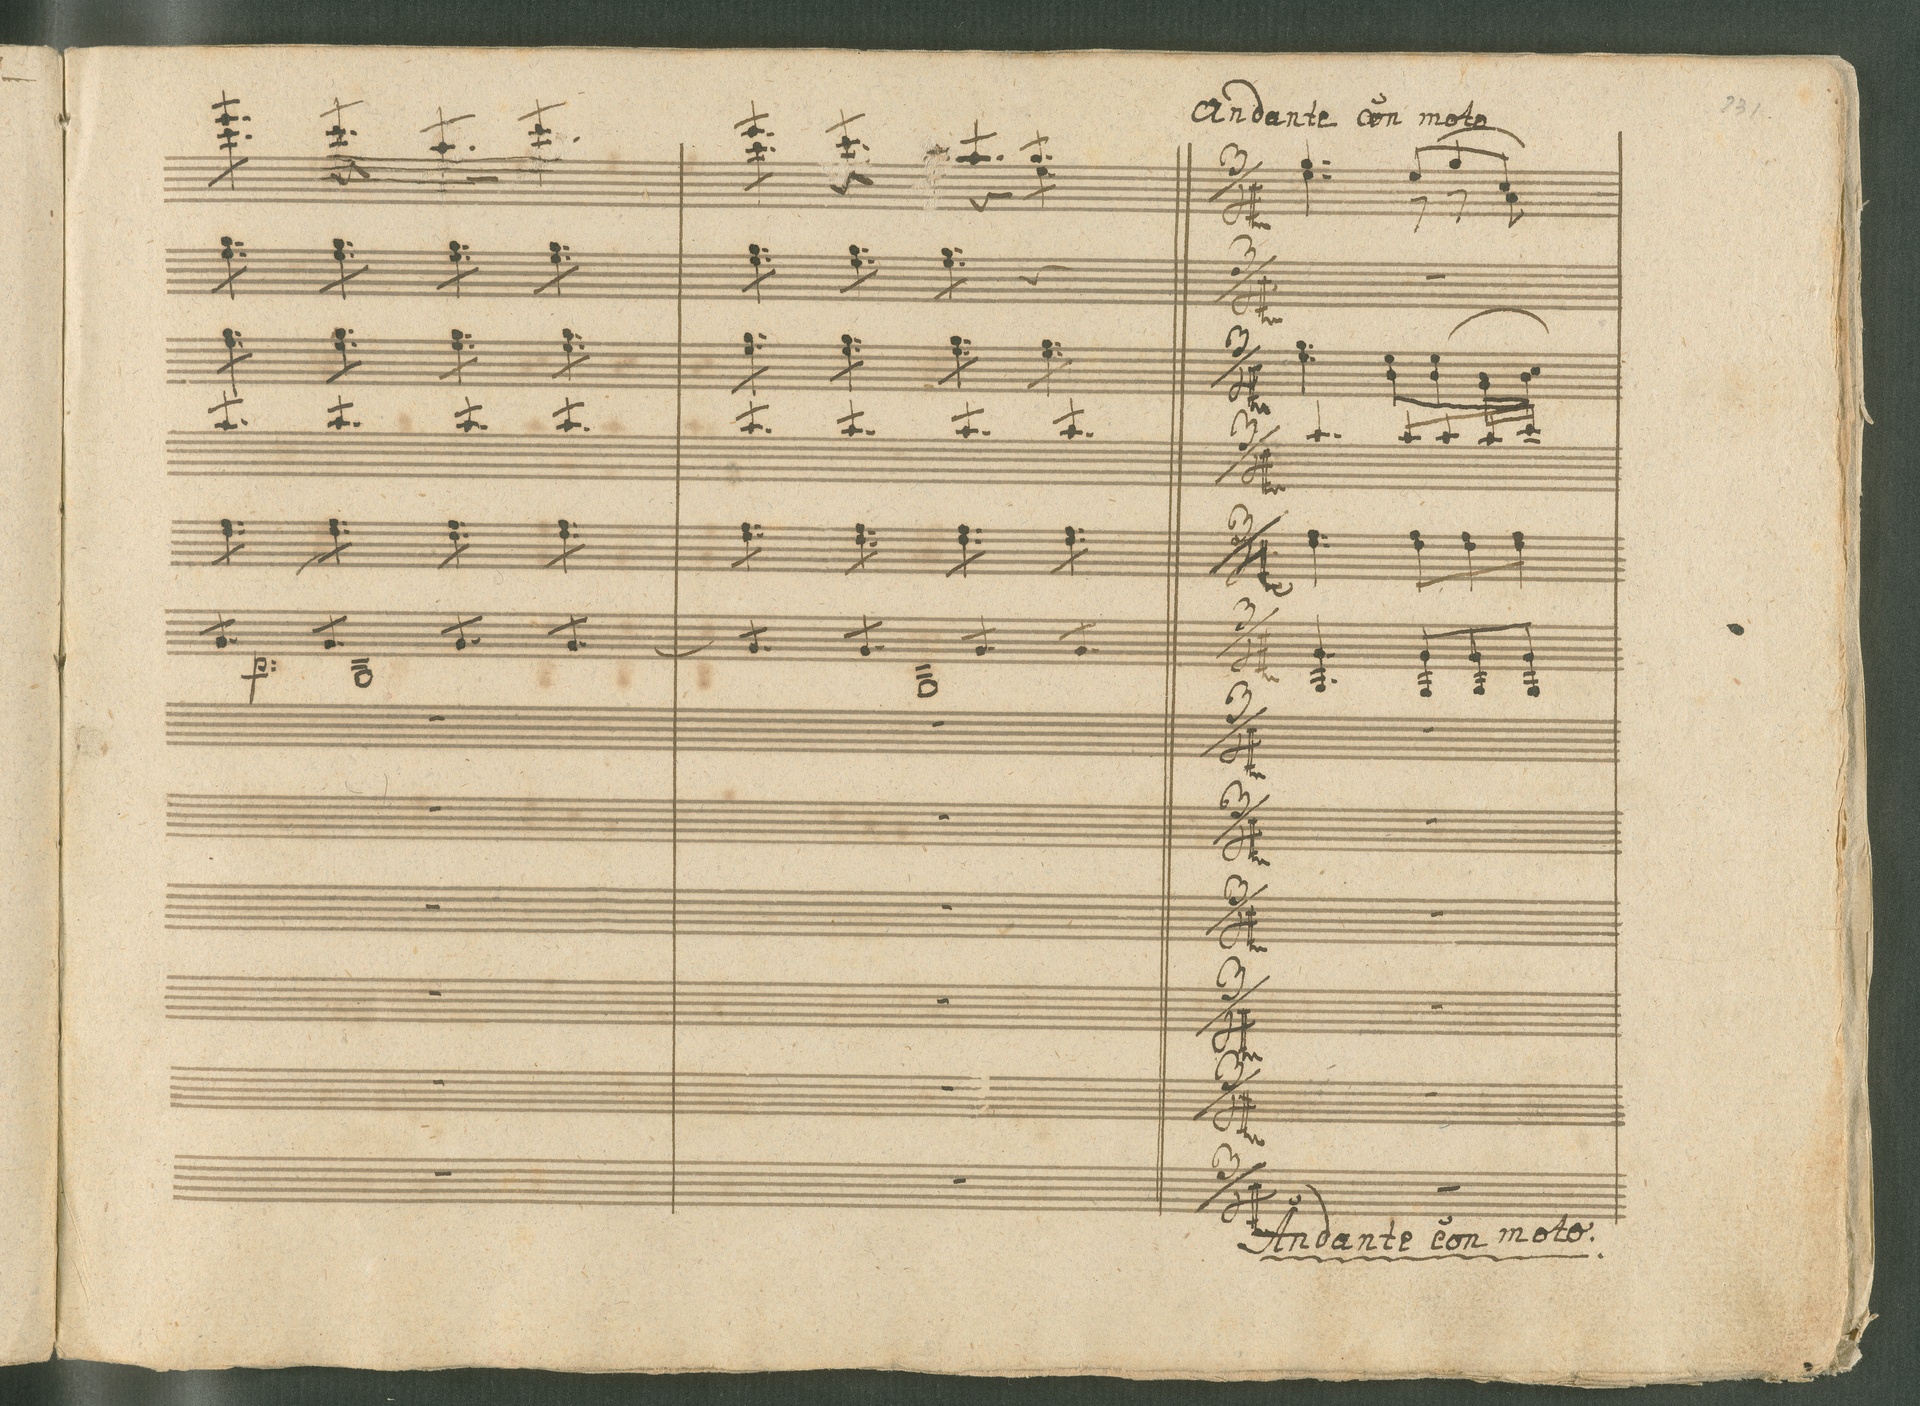 231.
Andante con moto
p:
Andante con moto.